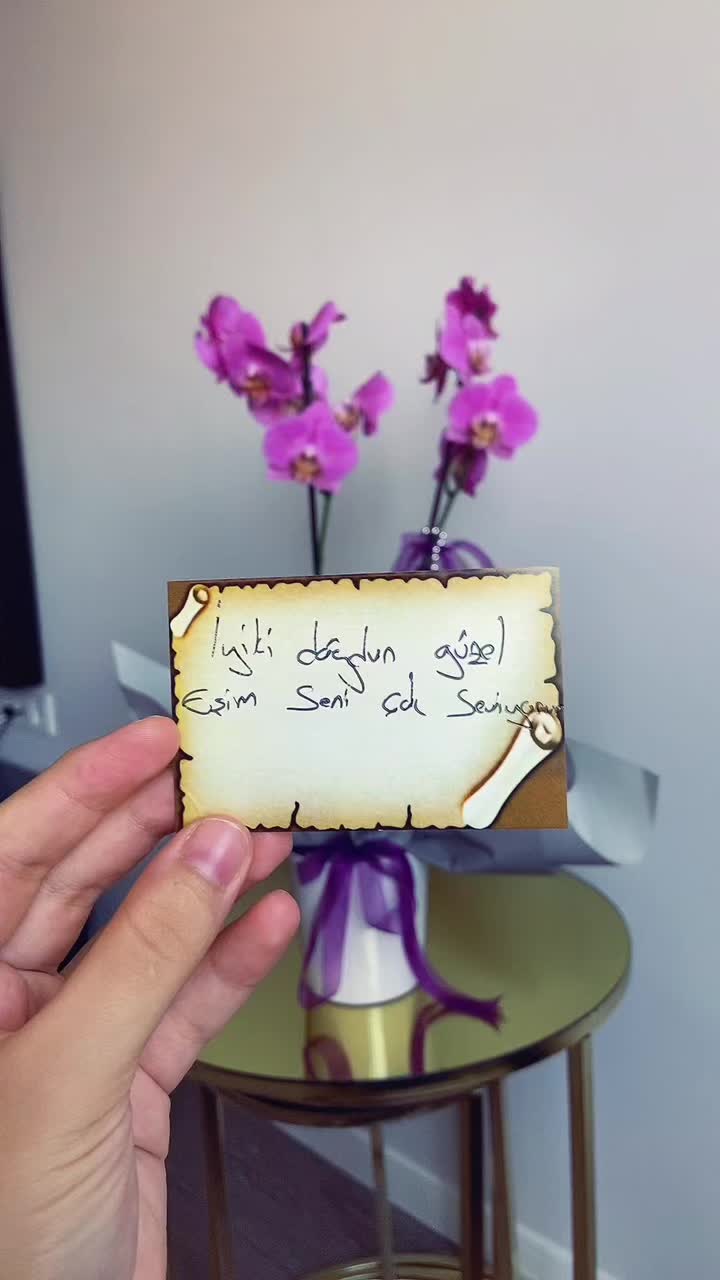 İyiki doğdun güzel
Eşim Seni çok Seviyorum